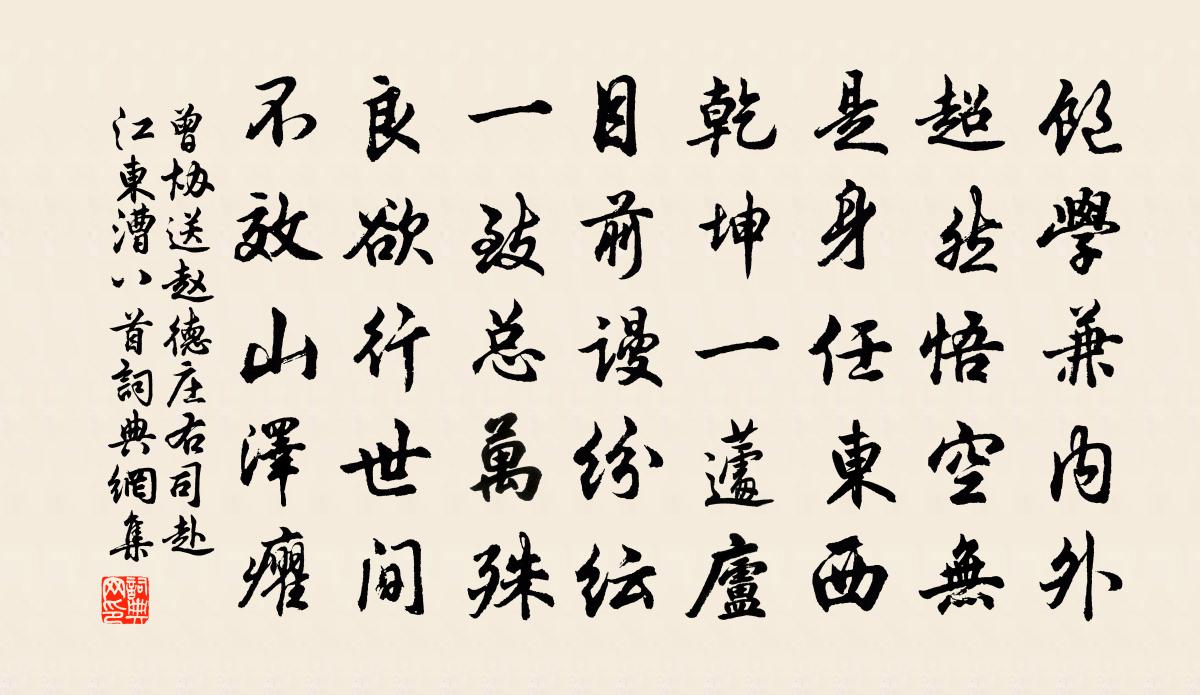 飽學兼内外
超然悟空無
是身任東西
乾坤一蘧廬
目前謾紛紜
一致总萬殊
良欲行世間
不效山澤癯
曾协送赵德庄右司赴
江東漕八首詞典網集
詞典网印